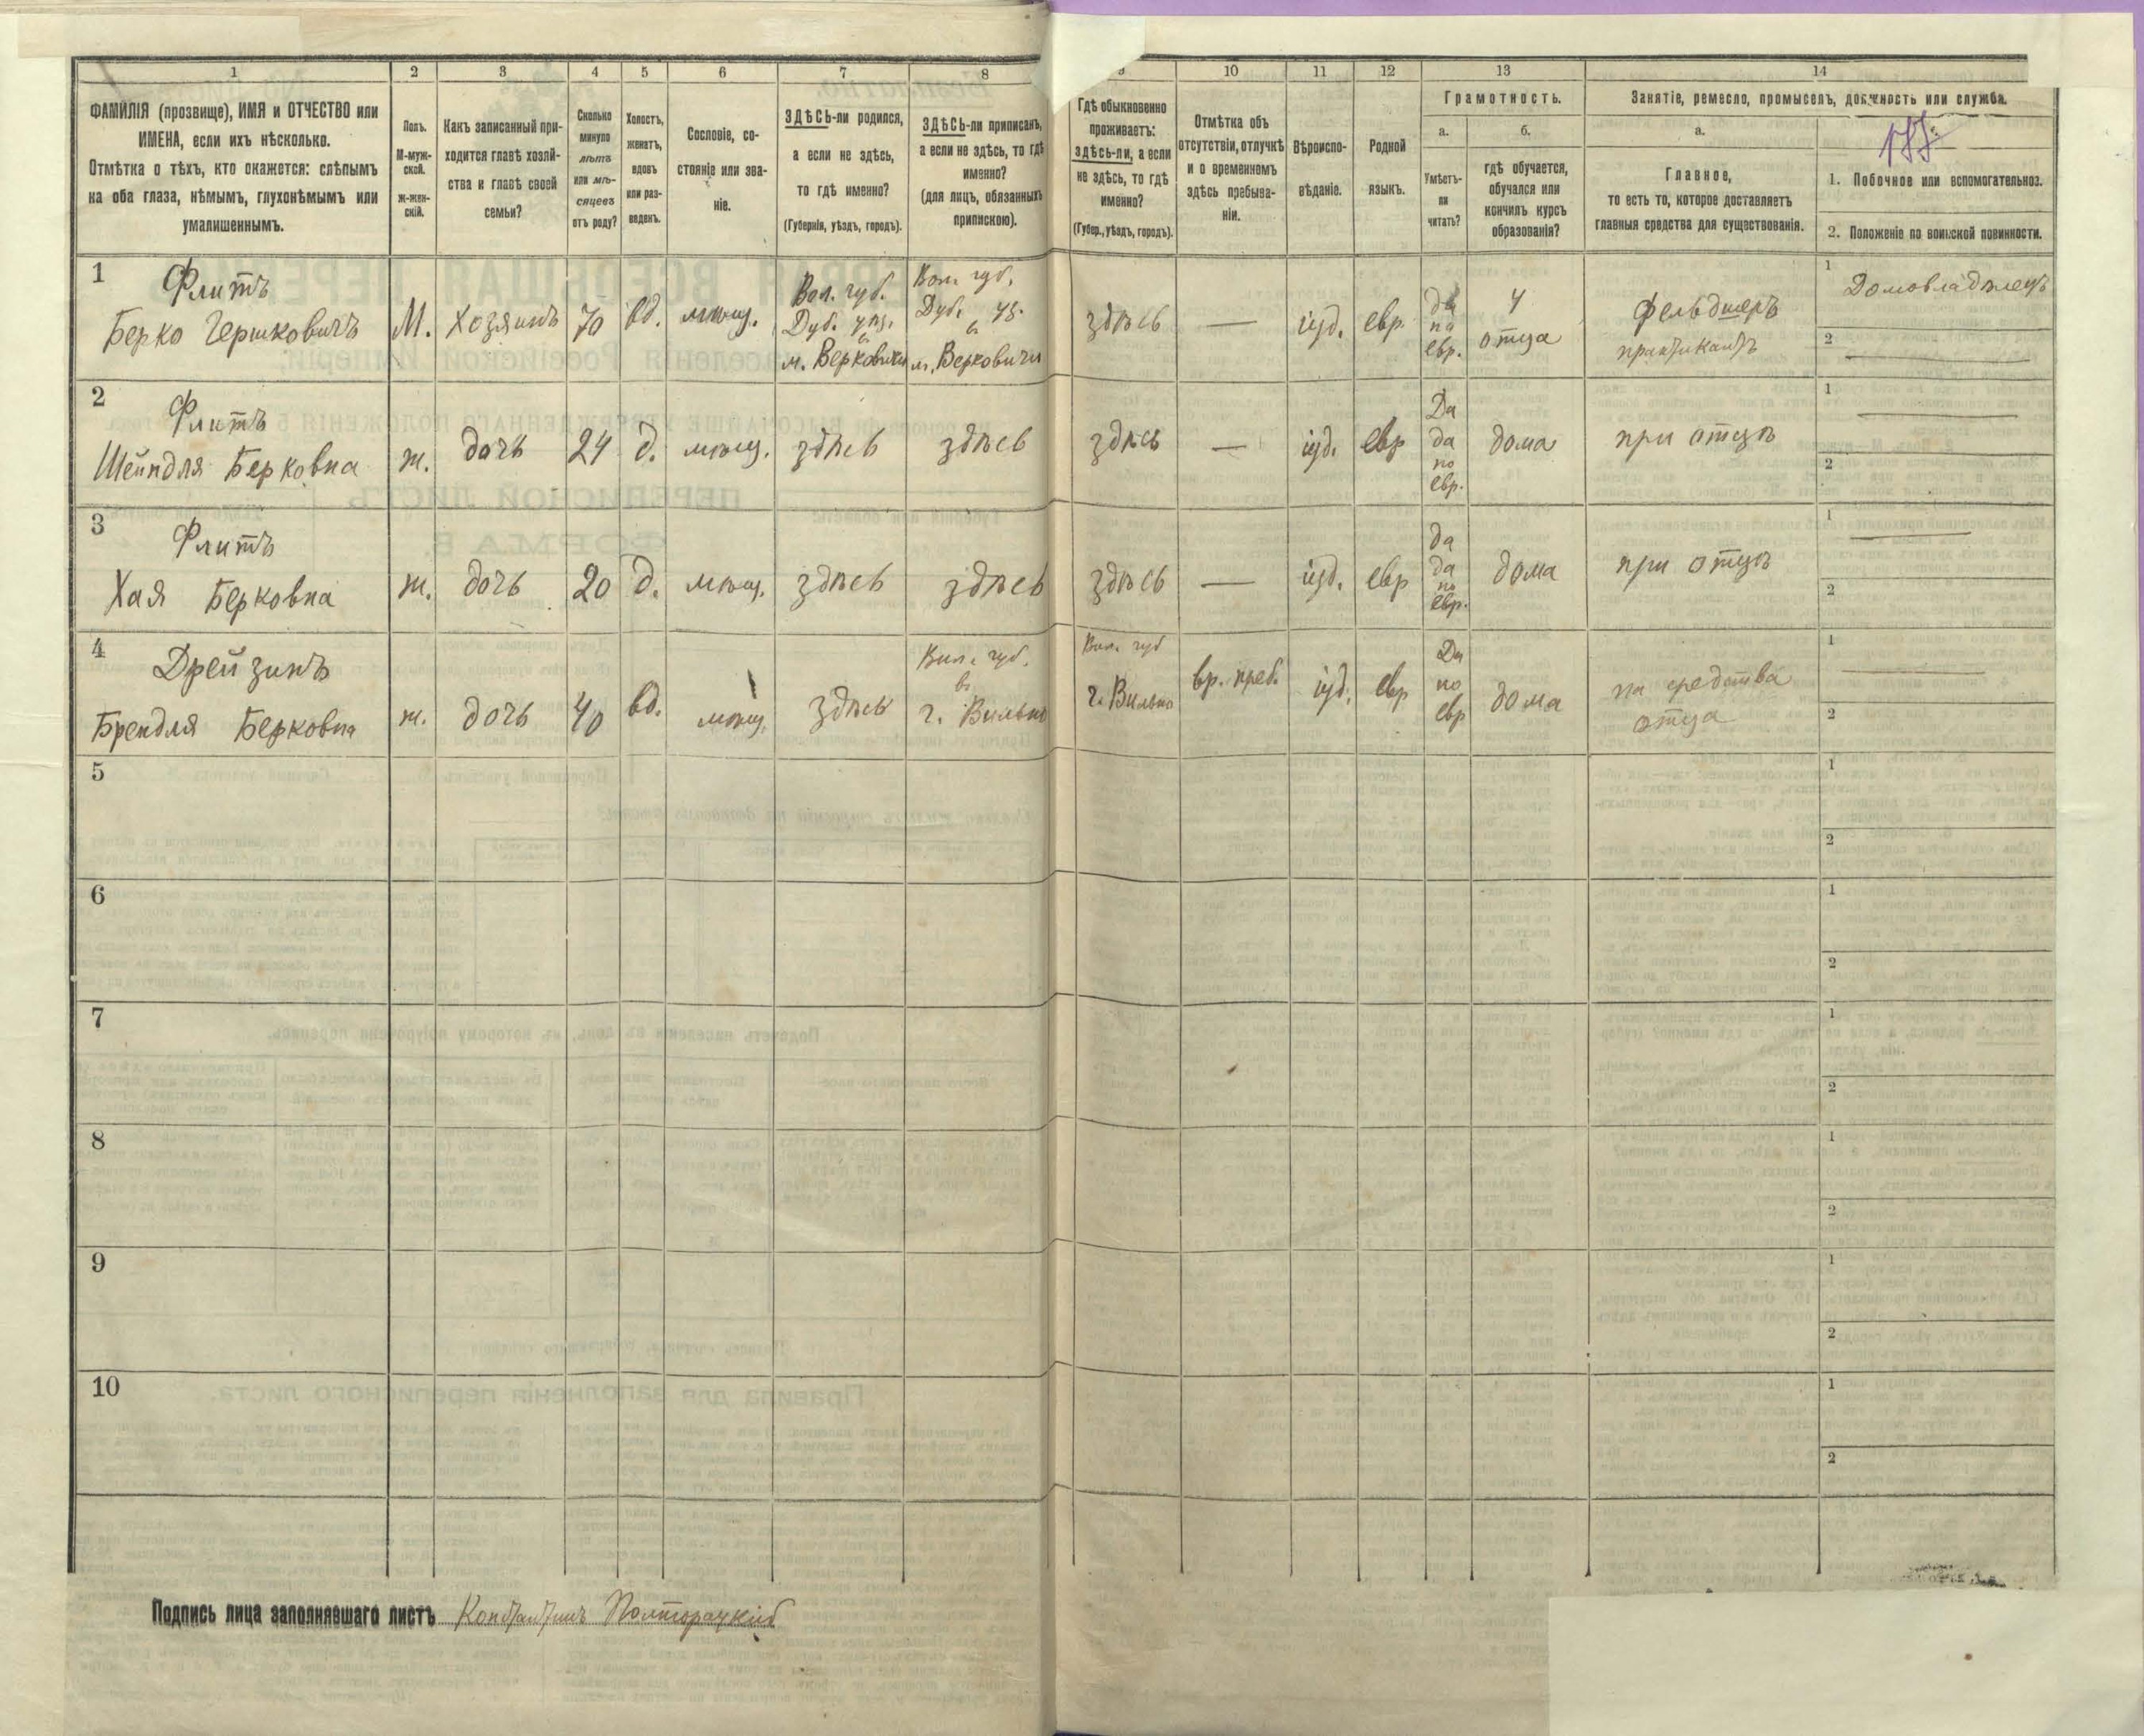 1
2
3
4
5
6
7
8
9
10
11
12
13
14
ФАМИЛІЯ (прозвище), ИМЯ и ОТЧЕСТВО или
ИМЕНА, если ихъ нѣсколько.
Отмѣтка о тѣхъ, кто окажется: слѣпымъ
на оба глаза, нѣмымъ, глухонѣмымъ или
умалишеннымъ.
Полъ.
М-муж-
ской.
Ж-жен-
скій.
Какъ записанный при-
ходится главѣ хозяй-
ства и главѣ своей
семьи?
Сколько
минуло
лѣтъ
или мѣ-
сяцевъ
отъ роду?
Холостъ,
женатъ,
вдовъ
или раз-
веденъ.
Сословіе, со-
стояніе или зва-
ніе.
ЗДѢСЬ-ли родился,
а если не здѣсь,
то гдѣ именно?
(Губернія, уѣздъ, городъ).
ЗДѢСЬ-ли приписанъ,
а если не здѣсь, то гдѣ
именно?
(для лицъ, обязанныхъ
припискою).
Гдѣ обыкновенно
проживаетъ:
здѣсь-ли, а если
не здѣсь, то гдѣ
именно?
(Губер., уѣздъ, городъ).
Отмѣтка объ
отсутствіи, отлучкѣ
и о временномъ
здѣсь пребыва-
ніи.
Вѣроиспо-
вѣданіе.
Родной
языкъ.
Грамотность.
а.
Умѣетъ-
ли
читать?
б.
гдѣ обучается,
обучался или
кончилъ курсъ
образованія?
Занятіе, ремесло, промыселъ, должность или служба.
а.
Главное,
то есть то, которое доставляетъ
главныя средства для существованія.
1. Побочное или вспомогательное.
2. Положеніе по воинской повинности.
1
Флитъ
Берко Гершковичъ
М.
хозяинъ
70
вд.
мѣщ.
Вол. губ.
Дуб. уѣз.
м. Верковичи
Вол. губ.
Дуб. уѣ.
м. Верковичи
здѣсь
—
іуд.
евр.
да
по
евр.
у
отца
фельдшеръ
практикантъ
1
Домовладѣлецъ
2
2
Флитъ
Шейндля Берковна
ж.
дочь
24
д.
мѣщ.
здѣсь
здѣсь
здѣсь
—
іуд.
евр
Да
да
по
евр.
дома
при отцѣ
1
2
3
Флитъ
Хая Берковна
ж.
дочь
20
д.
мѣщ.
здѣсь
здѣсь
здѣсь
—
іуд.
евр
да
да
по
евр.
дома
при отцѣ
1
2
4
Дрейзинъ
Брендля Берковна
ж.
дочь
40
вд.
мѣщ.
здѣсь
Вил. губ.
в
г. Вильно
Вил. губ
г. Вильно
вр. преб.
іуд.
евр
Да
по
евр
дома
на средства
отца
1
2
5
1
2
6
1
2
7
1
2
8
1
2
9
1
2
10
1
2
Подпись лица заполнявшаго листъ Константинъ Полторацкій